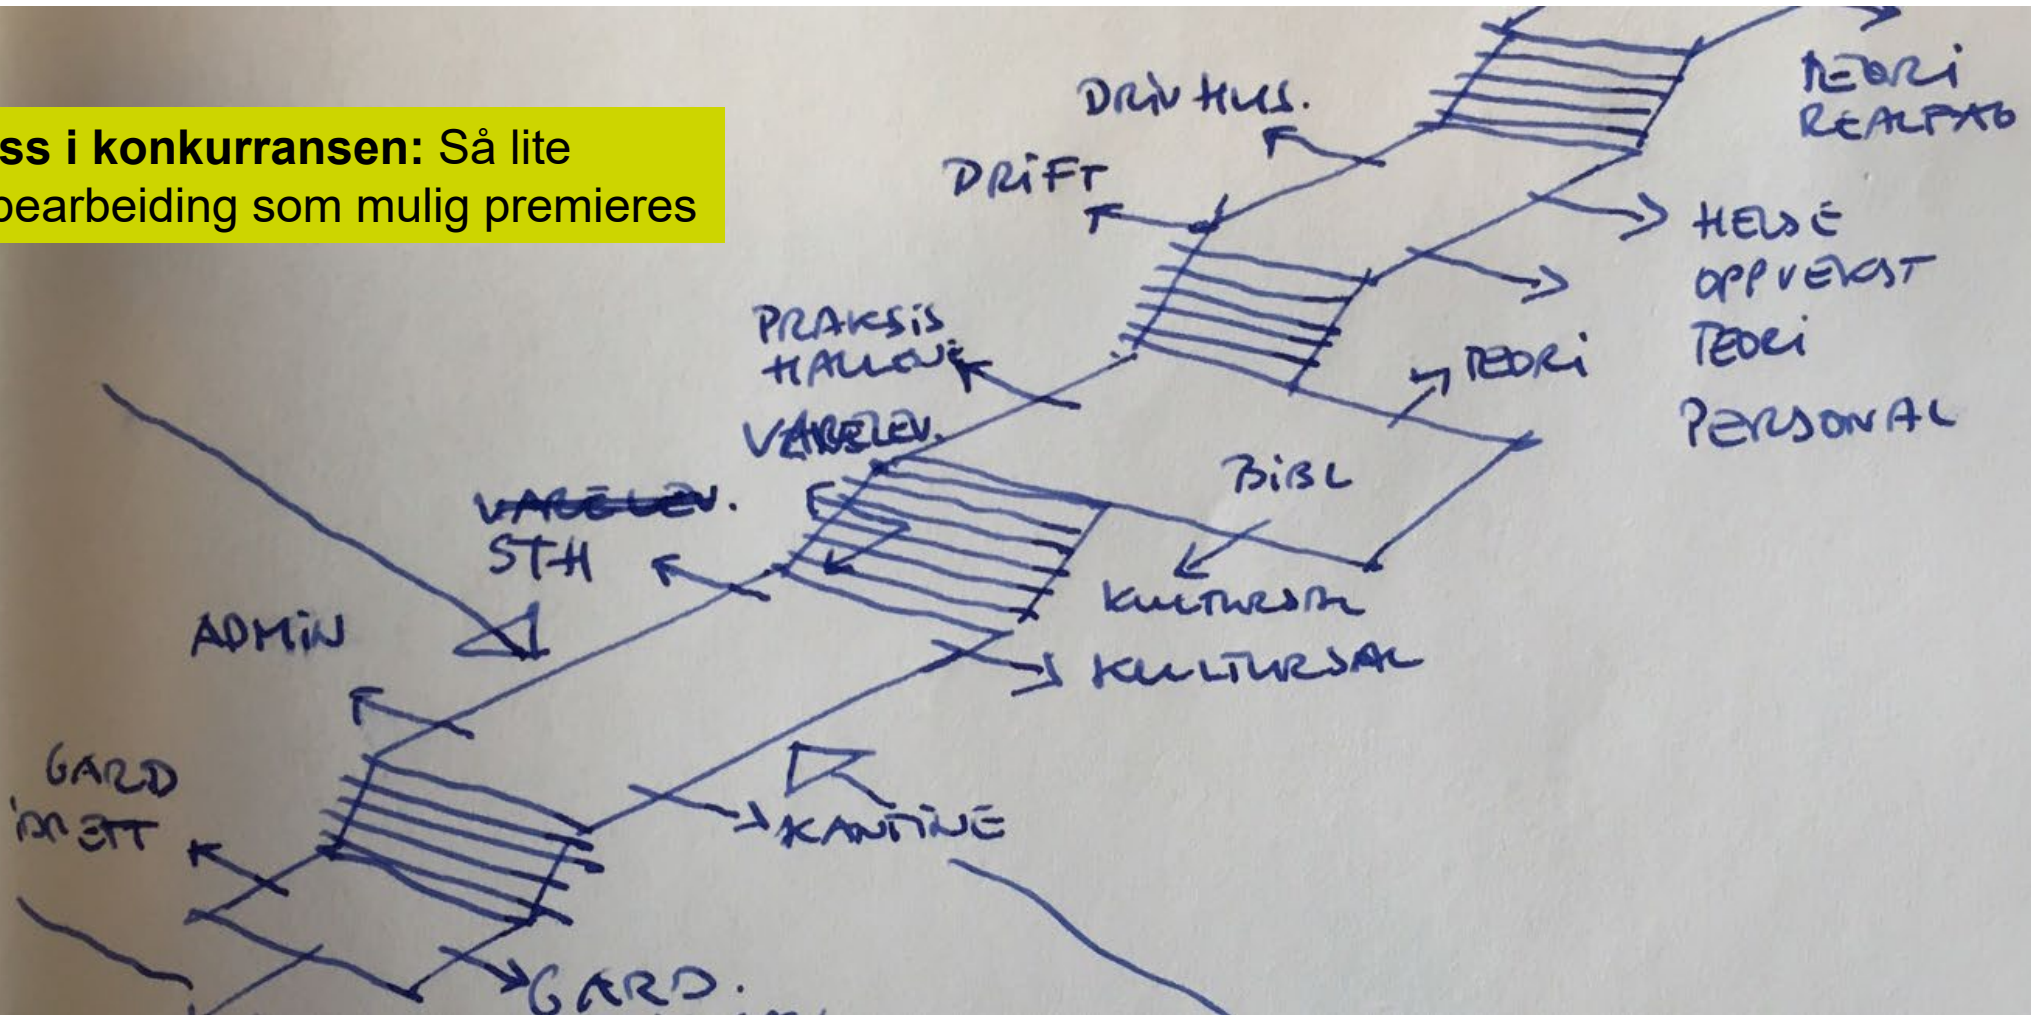 ss i konkurransen: Så lite
bearbeiding som mulig premieres
DRIVHUS.
TEORI
REALFAG
DRIFT
HELSE
OPPVEKST
TEORI
PERSONAL
PRAKSIS
HALLENE
VARELEV.
TEORI
BIBL
VARELEV.
STH
KULTURSAL
KULTURSAL
ADMIN
GARD
IDRETT
KANTINE
GARD.